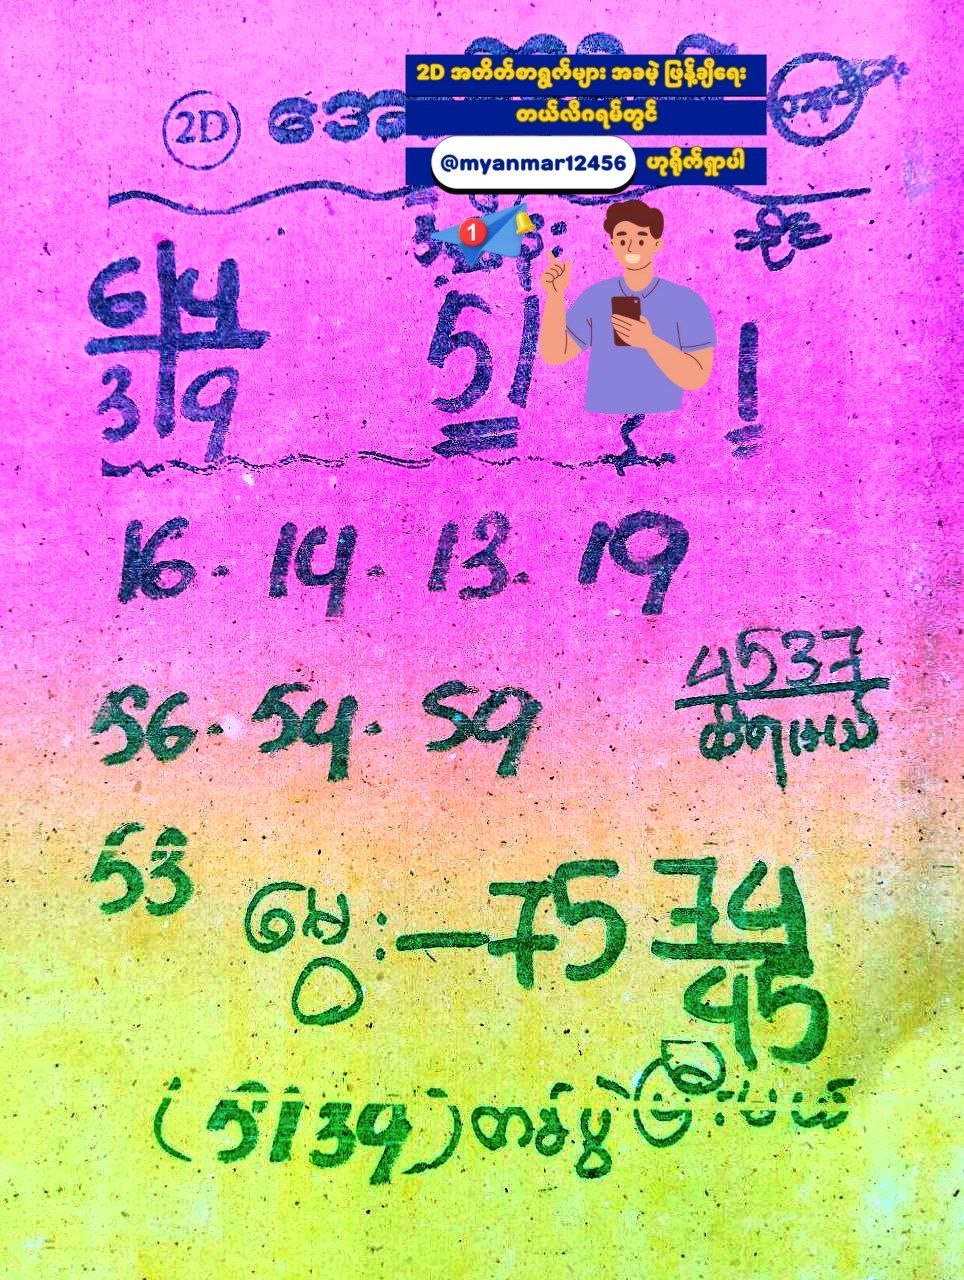 2D အတိတ်စာရွက်များ အခမဲ့ ဖြန့်ချီရေး
တယ်လီဂရမ်တွင်
@myanmar12456 ဟုရိုက်ရှာပါ
2D
1
64
39
51
1
16. 14. 13. 19
56. 54. 59
4537
ထိရမယ်
53
မွေး - 75 74
45
(5139) တစ်ပွဲပြီးမယ်